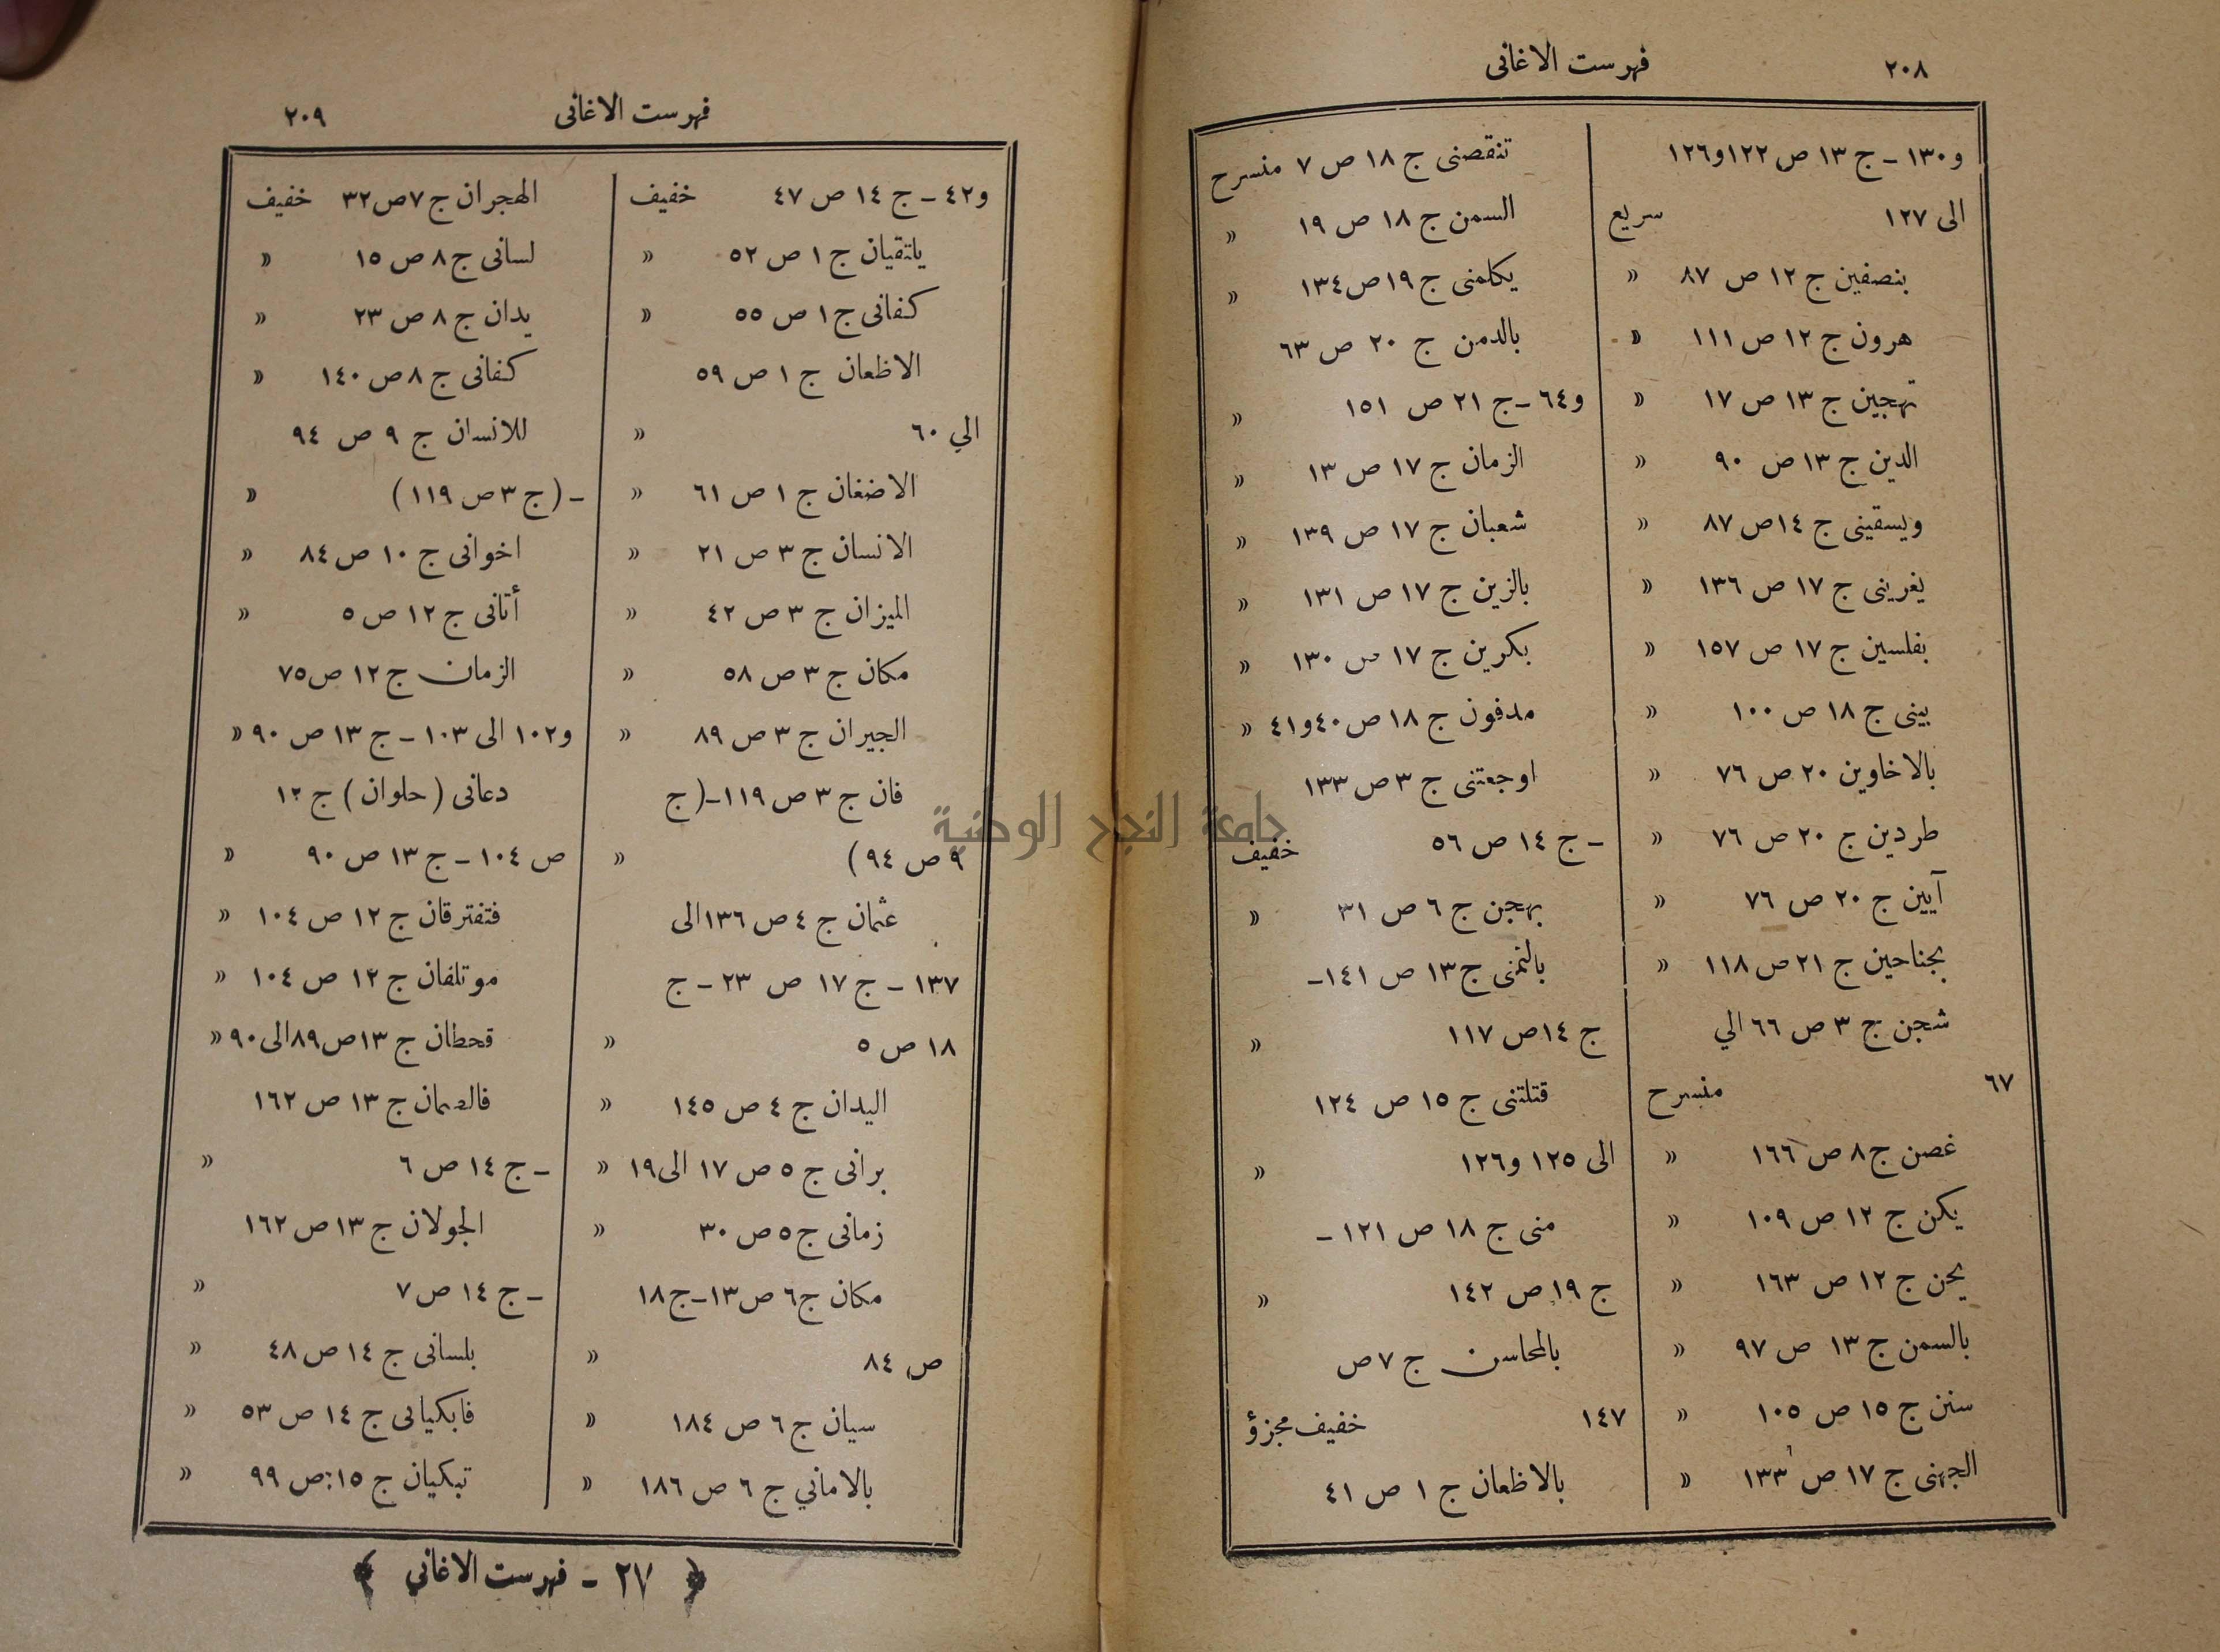 ٢٠٨ فهرست الاغانى
و١٣٠ – ج ١٣ ص ١٢٢و١٢٦
الى ١٢٧ سريع
بنصفين ج ١٢ ص ٨٧ «
هرون ج ١٢ ص ١١١ «
تهجين ج ١٣ ص ١٧ «
الدين ج ١٣ ص ٩٠ «
ويسقينى ج ١٤ص ٨٧ «
يغرينى ج ١٧ ص ١٣٦ «
بفلسين ج ١٧ ص ١٥٧ «
بينى ج ١٨ ص ١٠٠ «
بالاخاوين ٢٠ ص ٧٦ «
طردين ج ٢٠ ص ٧٦ «
آيين ج ٢٠ ص ٧٦ «
بجناحين ج ٢١ ص ١١٨ «
شجن ج ٣ ص ٦٦ الي
٦٧ منسرح
غصن ج٨ ص ١٦٦ «
يكن ج ١٢ ص ١٠٩ «
يحن ج ١٢ ص ١٦٣ «
بالسمن ج ١٣ ص ٩٧ «
سنن ج ١٥ ص ١٠٥ «
الجهنى ج ١٧ ص ١٣٣ «
تنقصنى ج ١٨ ص ٧ منسرح
السمن ج ١٨ ص ١٩ «
يكلمنى ج ١٩ ص١٣٤ «
بالدمن ج ٢٠ ص ٦٣
و٦٤ – ج ٢١ ص ١٥١ «
الزمان ج ١٧ ص ١٣ «
شعبان ج ١٧ ص ١٣٩ «
بالزين ج ١٧ ص ١٣١ «
بكرين ج ١٧ ص ١٣٠ «
مدفون ج ١٨ ص ٤٠و٤١ «
اوجعتنى ج ٣ ص ١٣٣
– ج ١٤ ص ٥٦ خفيف
بهجن ج ٦ ص ٣١ «
بالتمنى ج ١٣ ص ١٤١–
ج ١٤ص ١١٧ «
قتلتنى ج ١٥ ص ١٢٤
الى ١٢٥ و١٢٦ «
منى ج ١٨ ص ١٢١ –
ج ١٩ ص ١٤٢ «
بالمحاسن ج ٧ ص
١٤٧ خفيف مجزؤ
بالاظعان ج ١ ص ٤١
فهرست الاغانى ٢٠٩
و٤٢ – ج ١٤ ص ٤٧ خفيف
يلتقيان ج ١ ص ٥٢ «
كفانى ج ١ ص ٥٥ «
الاظعان ج ١ ص ٥٩
الي ٦٠ «
الاضغان ج ١ ص ٦١ «
الانسان ج ٣ ص ٢١ «
الميزان ج ٣ ص ٤٢ «
مكان ج ٣ ص ٥٨ «
الجيران ج ٣ ص ٨٩ «
فان ج ٣ ص ١١٩–(ج
٩ ص ٩٤) «
عثمان ج ٤ ص ١٣٦الى
١٣٧ – ج ١٧ ص ٢٣ – ج
١٨ ص ٥ «
اليدان ج ٤ ص ١٤٥ «
برانى ج ٥ ص ١٧ الى١٩ «
زمانى ج ٥ ص ٣٠ «
مكان ج٦ ص ١٣–ج١٨
ص ٨٤ «
سيان ج ٦ ص ١٨٤ «
بالاماني ج ٦ ص ١٨٦ «
الهجران ج ٧ص٣٢ خفيف
لسانى ج ٨ ص ١٥ «
يدان ج ٨ ص ٢٣ «
كفانى ج ٨ ص ١٤٠ «
للانسان ج ٩ ص ٩٤
– (ج ٣ ص ١١٩) «
اخوانى ج ١٠ ص ٨٤ «
أتانى ج ١٢ ص ٥ «
الزمان ج ١٢ ص٧٥
و١٠٢ الى ١٠٣ – ج ١٣ ص ٩٠ «
دعانى (حلوان) ج ١٢
ص ١٠٤ – ج ١٣ ص ٩٠ «
فتفترقان ج ١٢ ص ١٠٤ «
موتلفان ج ١٢ ص ١٠٤ «
قحطان ج ١٣ص٨٩الى٩٠ «
فالصمان ج ١٣ ص ١٦٢
– ج ١٤ ص ٦ «
الجولان ج ١٣ ص ١٦٢
– ج ١٤ ص ٧ «
بلسانى ج ١٤ ص ٤٨ «
فابكيانى ج ١٤ ص ٥٣ «
تبكيان ج ١٥ ص ٩٩ «
﴿ ٢٧ – فهرست الاغاني ﴾
جامعة النجاح الوطنية